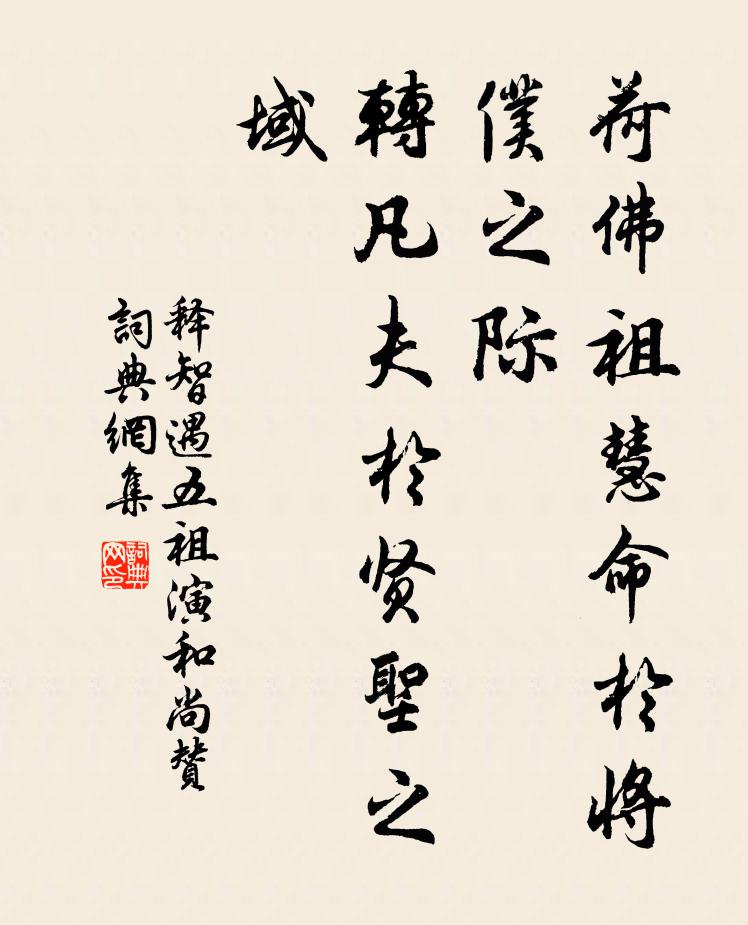 荷佛祖慧命於將
僕之际
轉凡夫於贤聖之
域
释智遇五祖演和尚贊
詞典網集
詞典网印